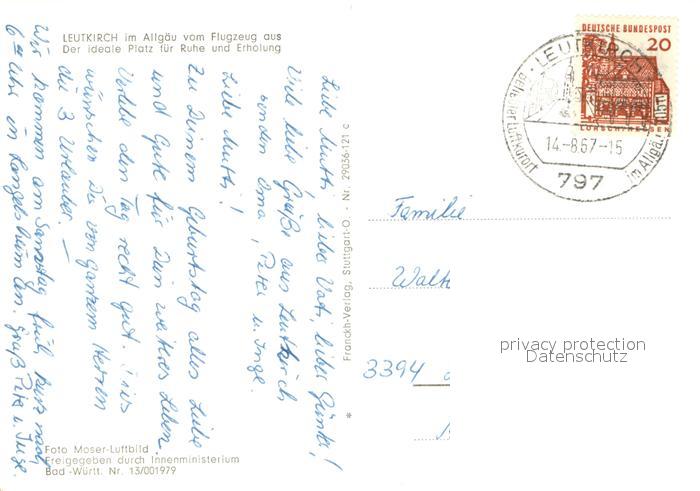 LEUTKIRCH im Allgäu vom Flugzeug aus
Der ideale Platz für Ruhe und Erholung
Liebe Mutti, lieber Vati, lieber Günter!
Viele liebe Grüße aus Leutkirch
senden Oma, Peter u. Inge.
Liebe Mutti!
Zu Deinem Geburtstag alles Liebe
und Gute für Dein weiteres Leben.
Verlebe den Tag recht gut. Dies
wünschen Dir von ganzem Herzen
die 3 Urlauber. —
Wir kommen am Samstag früh, kurz nach
6 Uhr in an. Gruß Peter u. Inge.
Foto Moser-Luftbild
Freigegeben durch Innenministerium
Bad.-Württ. Nr. 13/001979
Franckh-Verlag, Stuttgart-O · Nr. 29036-121 c
*
DEUTSCHE BUNDESPOST
20
LORSCH/HESSEN
LEUTKIRCH
Luftkurort
im Allgäu
14.-8.67-15
797
Familie
Walt
3394
privacy protection
Datenschutz